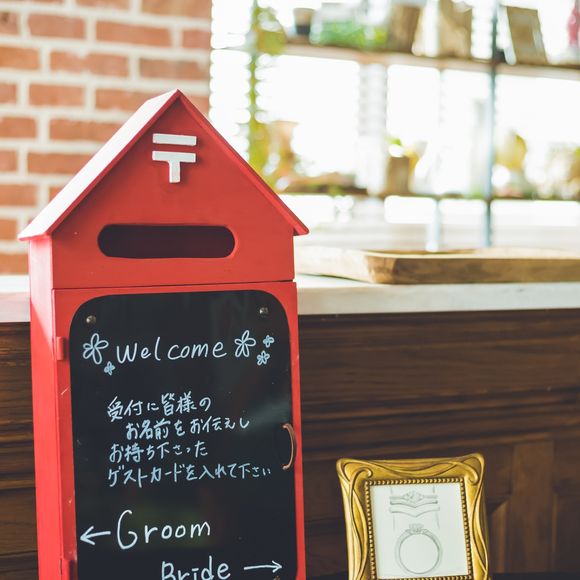 〒
Welcome
受付に皆様の
お名前をお伝えし
お持ち下さった
ゲストカードを入れて下さい
← Groom
Bride →